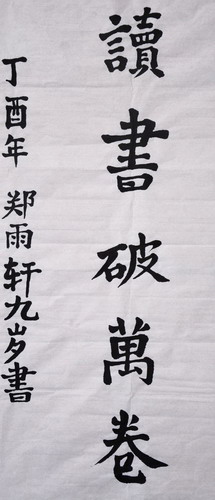 讀書破萬卷
丁酉年 郑雨轩九岁書